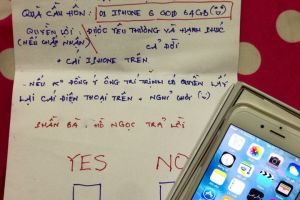 QUÀ CẦU HÔN: 01 IPHONE 6 GOLD 64GB
QUYỀN LỢI: ĐƯỢC YÊU THƯƠNG VÀ HẠNH PHÚC
(NẾU CHẤP NHẬN) CẢ ĐỜI
+ CÁI IPHONE TRÊN
NẾU K ĐỒNG Ý ÔNG TRÍ TRÌNH CÓ QUYỀN LẤY
LẠI CÁI ĐIỆN THOẠI TRÊN + NGHỈ CHƠI
PHẦN BÀ HỒ NGỌC TRẢ LỜI
YES NO